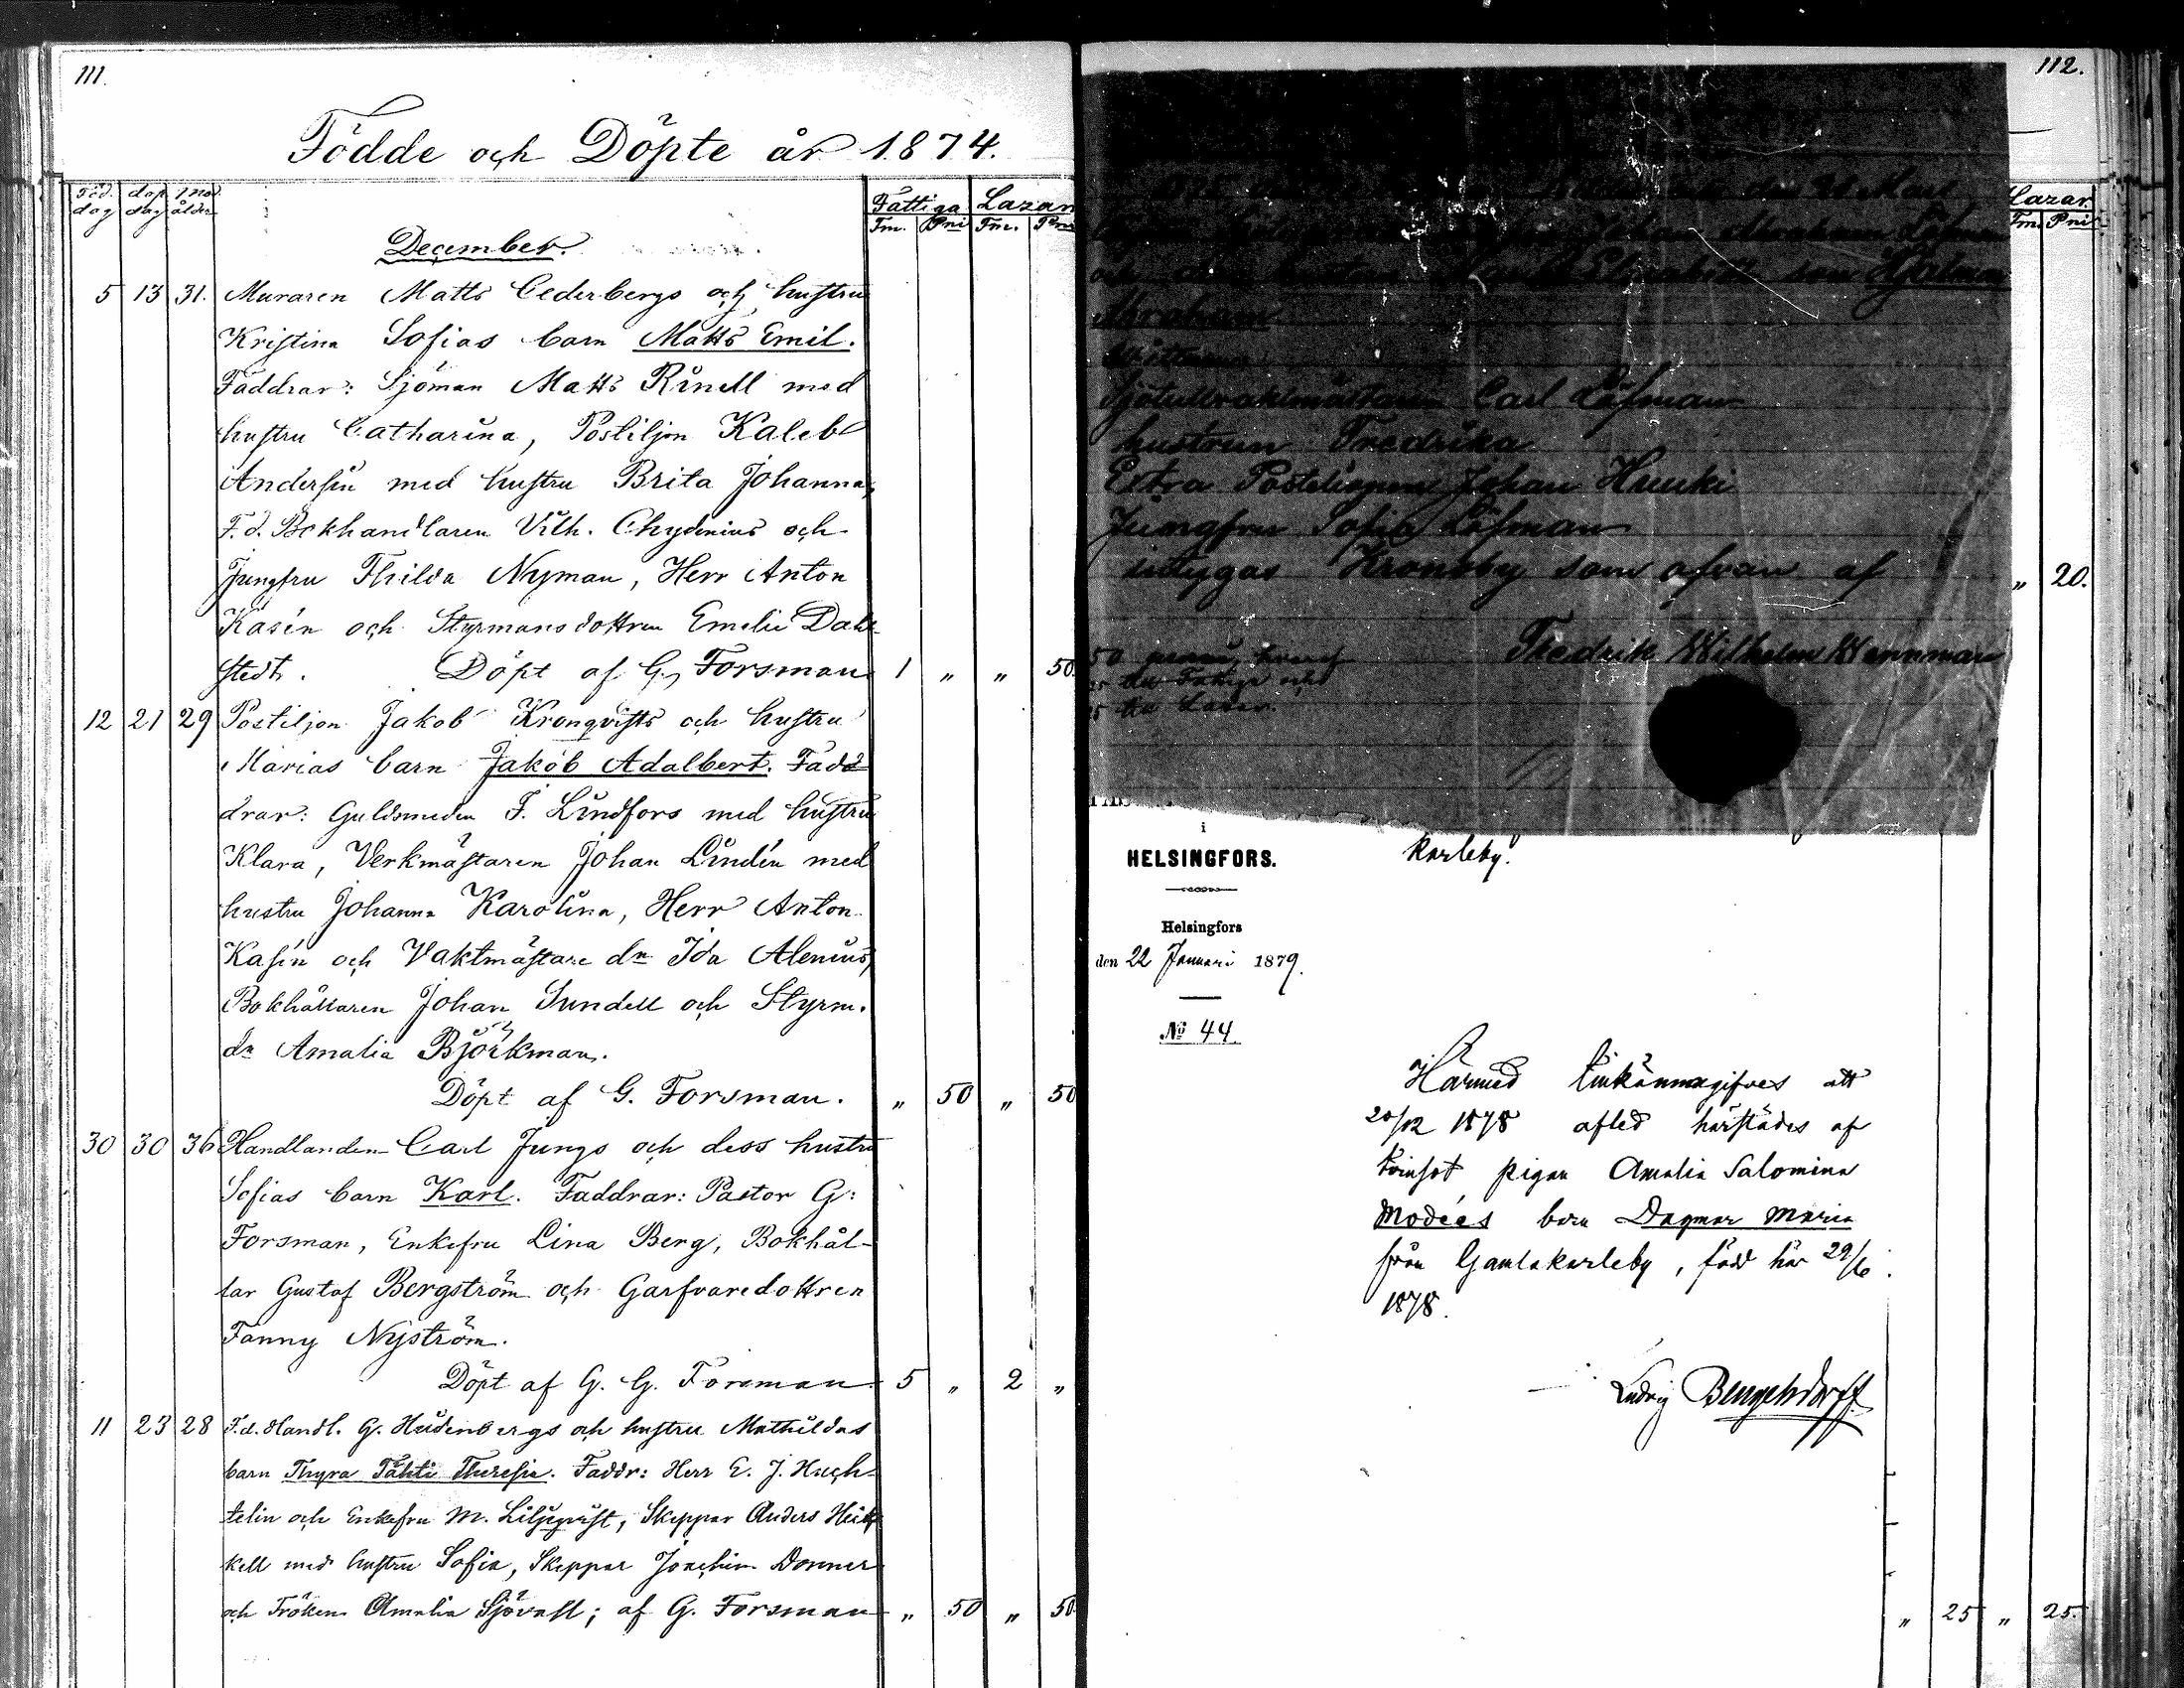 111.
Födde och Döpte år 1874.
Föd. dag
döp dag
mod. ålder
Fattiga
Lazar.
Fm. Pni Fm. Pni
December.
5 13 31. Muraren Matts Cederbergs och hustru
Kristina Sofias barn Matts Emil.
Faddrar: Sjöman Matts Rinell med
hustru Catharina, Postiljon Kaleb
Andersén med hustru Brita Johanna,
F.d. Bokhandlaren Vilh. Chydenius och
Jungfru Thilda Nyman, Herr Anton
Kasén och Styrmansdottren Emelie Dahl-
stedt. Döpt af G. Forsman 1 „ „ 50.
12 21 29 Postiljon Jakob Kronqvists och hustru
Marias barn Jakob Adalbert. Fad-
drar: Guldsmeden F. Lindfors med hustru
Klara, Verkmästaren Johan Lindén med
hustru Johanna Karolina, Herr Anton
Kasén och Vaktmästare dr Ida Alenius,
Bokhållaren Johan Sundell och Styrm.
dr Amalia Björkman.
Döpt af G. Forsman. „ 50 „ 50
30 30 36 Handlanden Carl Jungs och dess hustru
Sofias barn Karl. Faddrar: Pastor G:
Forsman, Enkefru Lina Berg, Bokhål-
lar Gustaf Bergström och Garfvaredottren
Fanny Nyström.
Döpt af G. G. Forsman 5 „ 2 „
11 23 28 F.d. Handl. G. Hidenbergs och hustru Mathildas
barn Thyra Tähti Theresia. Faddr: Herr E. J. Huch-
telin och Enkefru M. Liljeqvist, Skeppar Anders Heik-
kell med hustru Sofia, Skeppar Joachim Donner
och Fröken Amalia Sjövall; af G. Forsman „ 50 „ 50
112.
Lazar.
Fm. Pni
den 21 Mars
Johan Abraham Löfman
och hustru Elisabeth son Hjalmar
Abraham
Carl Löfman
hustrun Fredrika
Extra Postiljonen Johan Huuki
Jungfru Sofia Löfman
Kronoby som ofvan af
„ 20.
Fredrik Wilhelm Wennman
50 penni, hvaraf
25 till Fattige och
25 till Lazar.
i
HELSINGFORS.
Karleby.
Helsingfors
den 22 Januari 1879.
№ 44.
Härmed tillkännagifves att
20/12 1878 afled härstädes af
pigan Amalia Salomina
Modées barn Dagmar Maria
från Gamlakarleby, född här 29/6
1878.
Ludvig Bengelsdorff
„ 25 „ 25.